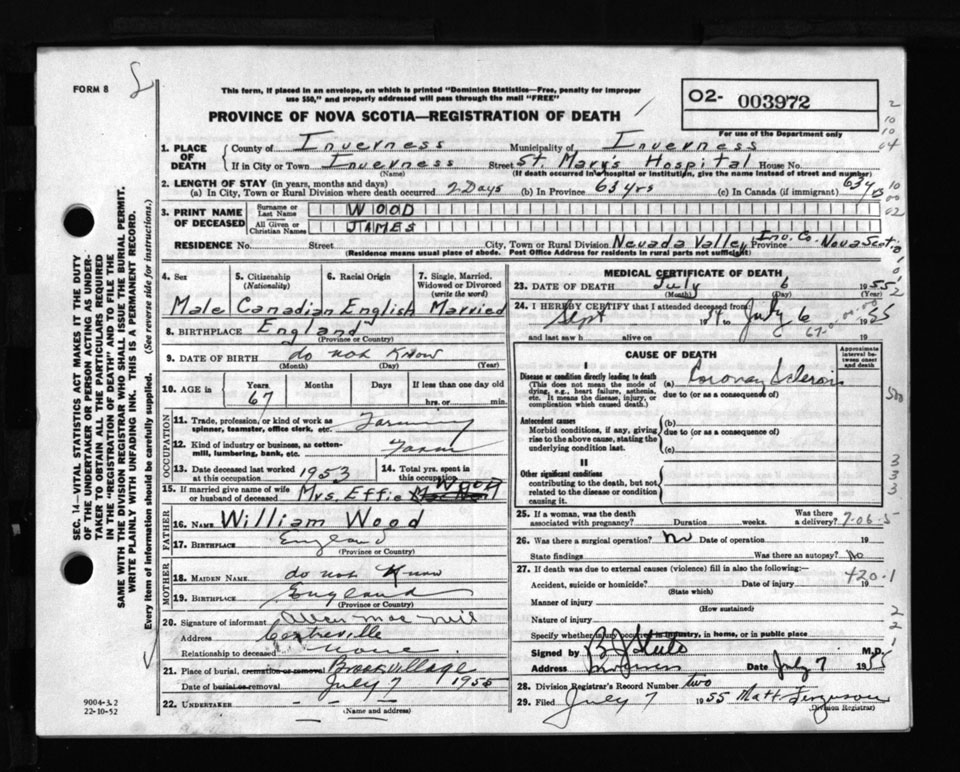 FORM 8
This form, if placed in an envelope, on which is printed "Dominion Statistics—Free, penalty for improper
use $50," and properly addressed will pass through the mail "FREE"
PROVINCE OF NOVA SCOTIA—REGISTRATION OF DEATH
O2- 003972
For use of the Department only
SEC. 14.—VITAL STATISTICS ACT MAKES IT THE DUTY
OF THE UNDERTAKER OR PERSON ACTING AS UNDER-
TAKER TO OBTAIN ALL THE PARTICULARS REQUIRED
IN THE "REGISTRATION OF DEATH" AND TO FILE THE
SAME WITH THE DIVISION REGISTRAR WHO SHALL ISSUE THE BURIAL PERMIT.
WRITE PLAINLY WITH UNFADING INK. THIS IS A PERMANENT RECORD.
Every item of information should be carefully supplied. (See reverse side for instructions.)
1. PLACE OF DEATH
County of Inverness Municipality of Inverness
If in City or Town Inverness Street St. Mary's Hospital House No.
(Name) (If death occurred in a hospital or institution, give the name instead of street and number)
2. LENGTH OF STAY (in years, months and days)
(a) In City, Town or Rural Division where death occurred 2 Days (b) In Province 63 yrs (c) In Canada (if immigrant) 63 yrs
3. PRINT NAME OF DECEASED
Surname or Last Name WOOD
All Given or Christian Names JAMES
RESIDENCE No. Street City, Town or Rural Division Nevada Valley Inv. Co. Province Nova Scotia
(Residence means usual place of abode. Post Office Address for residents in rural parts not sufficient)
4. Sex Male
5. Citizenship (Nationality) Canadian
6. Racial Origin English
7. Single, Married, Widowed or Divorced (write the word) Married
8. BIRTHPLACE England
(Province or Country)
9. DATE OF BIRTH do not know
(Month) (Day) (Year)
10. AGE in Years 67 Months Days If less than one day old hrs. or min.
OCCUPATION
11. Trade, profession, or kind of work as spinner, teamster, office clerk, etc. Farming
12. Kind of industry or business, as cotton-mill, lumbering, bank, etc. Farm
13. Date deceased last worked at this occupation 1953
14. Total yrs. spent in this occupation
15. If married give name of wife or husband of deceased Mrs. Effie WOOD
FATHER
16. NAME William Wood
17. BIRTHPLACE England
(Province or Country)
MOTHER
18. MAIDEN NAME do not know
19. BIRTHPLACE England
(Province or Country)
20. Signature of informant Allen mac neil
Address Centreville
Relationship to deceased none
21. Place of burial, cremation or removal Brook Village
Date of burial or removal July 7 1955
22. UNDERTAKER — — —
(Name and address)
9004-3.2
22-10-52
MEDICAL CERTIFICATE OF DEATH
23. DATE OF DEATH July 6 1955
(Month) (Day) (Year)
24. I HEREBY CERTIFY that I attended deceased from
Sept 1954 to July 6 1955
and last saw h alive on 19
CAUSE OF DEATH
Approximate interval between onset and death
I
Disease or condition directly leading to death (a) Coronary Sclerosis
(This does not mean the mode of dying, e.g., heart failure, asthenia, etc. It means the disease, injury, or complication which caused death.)
due to (or as a consequence of)
Antecedent causes (b)
Morbid conditions, if any, giving rise to the above cause, stating the underlying condition last.
due to (or as a consequence of)
(c)
II
Other significant conditions
contributing to the death, but not related to the disease or condition causing it.
25. If a woman, was the death associated with pregnancy? Duration weeks. Was there a delivery?
26. Was there a surgical operation? No Date of operation 19
State findings Was there an autopsy? No
27. If death was due to external causes (violence) fill in also the following:—
Accident, suicide or homicide? Date of injury 19
(State which)
Manner of injury
(How sustained)
Nature of injury
Specify whether injury occurred in industry, in home, or in public place
Signed by M.D.
Address Inverness Date July 7 1955
28. Division Registrar's Record Number two
29. Filed July 7 1955 Matt Ferguson
(Division Registrar)